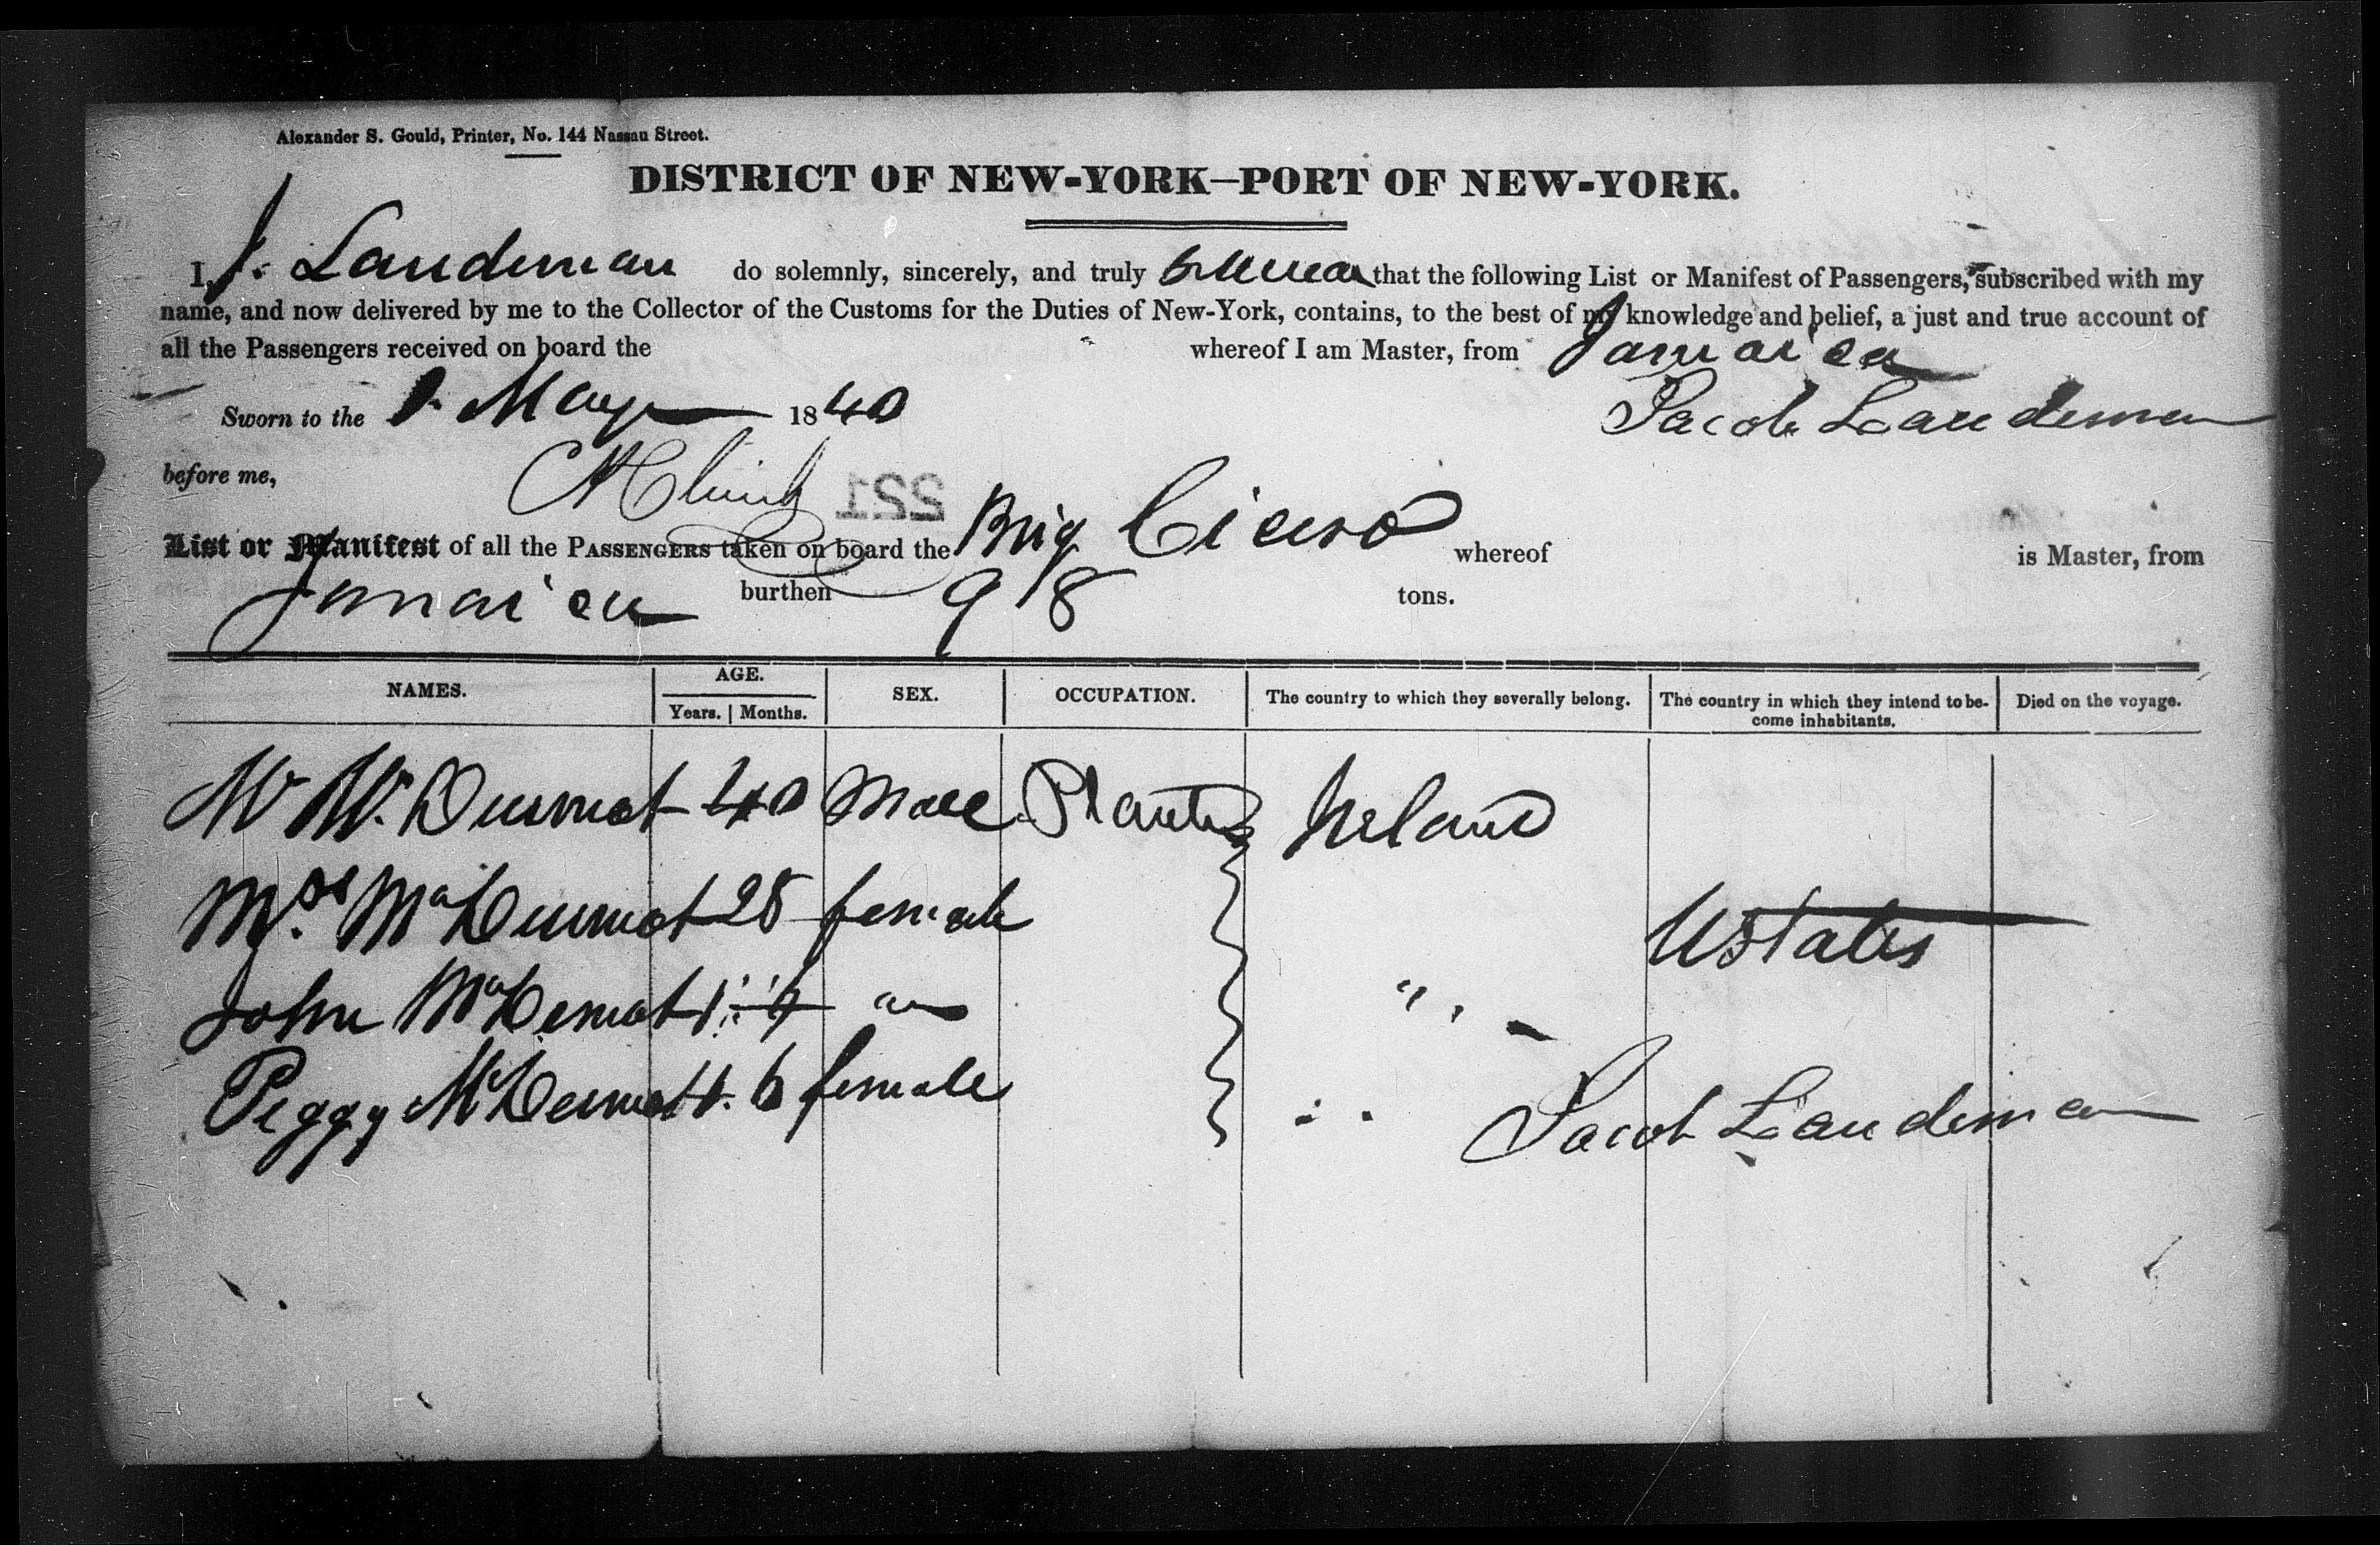 Alexander S. Gould, Printer, No. 144 Nassau Street.
DISTRICT OF NEW-YORK—PORT OF NEW-YORK.
I, J. Landeman do solemnly, sincerely, and truly swear that the following List or Manifest of Passengers, subscribed with my
name, and now delivered by me to the Collector of the Customs for the Duties of New-York, contains, to the best of my knowledge and belief, a just and true account of
all the Passengers received on board the whereof I am Master, from Jamaica
Sworn to the May 1840 Jacob Landeman
before me,
221
List or Manifest of all the PASSENGERS taken on board the Brig Cicero whereof is Master, from
Jamaica burthen 98 tons.
NAMES. AGE. Years. Months. SEX. OCCUPATION. The country to which they severally belong. The country in which they intend to become inhabitants. Died on the voyage.
Dermot 40 Male Planter Ireland
Mrs. McDermot 28 female UStates
John McDermot " "
Peggy McDermot 6 female " "
Jacob Landeman